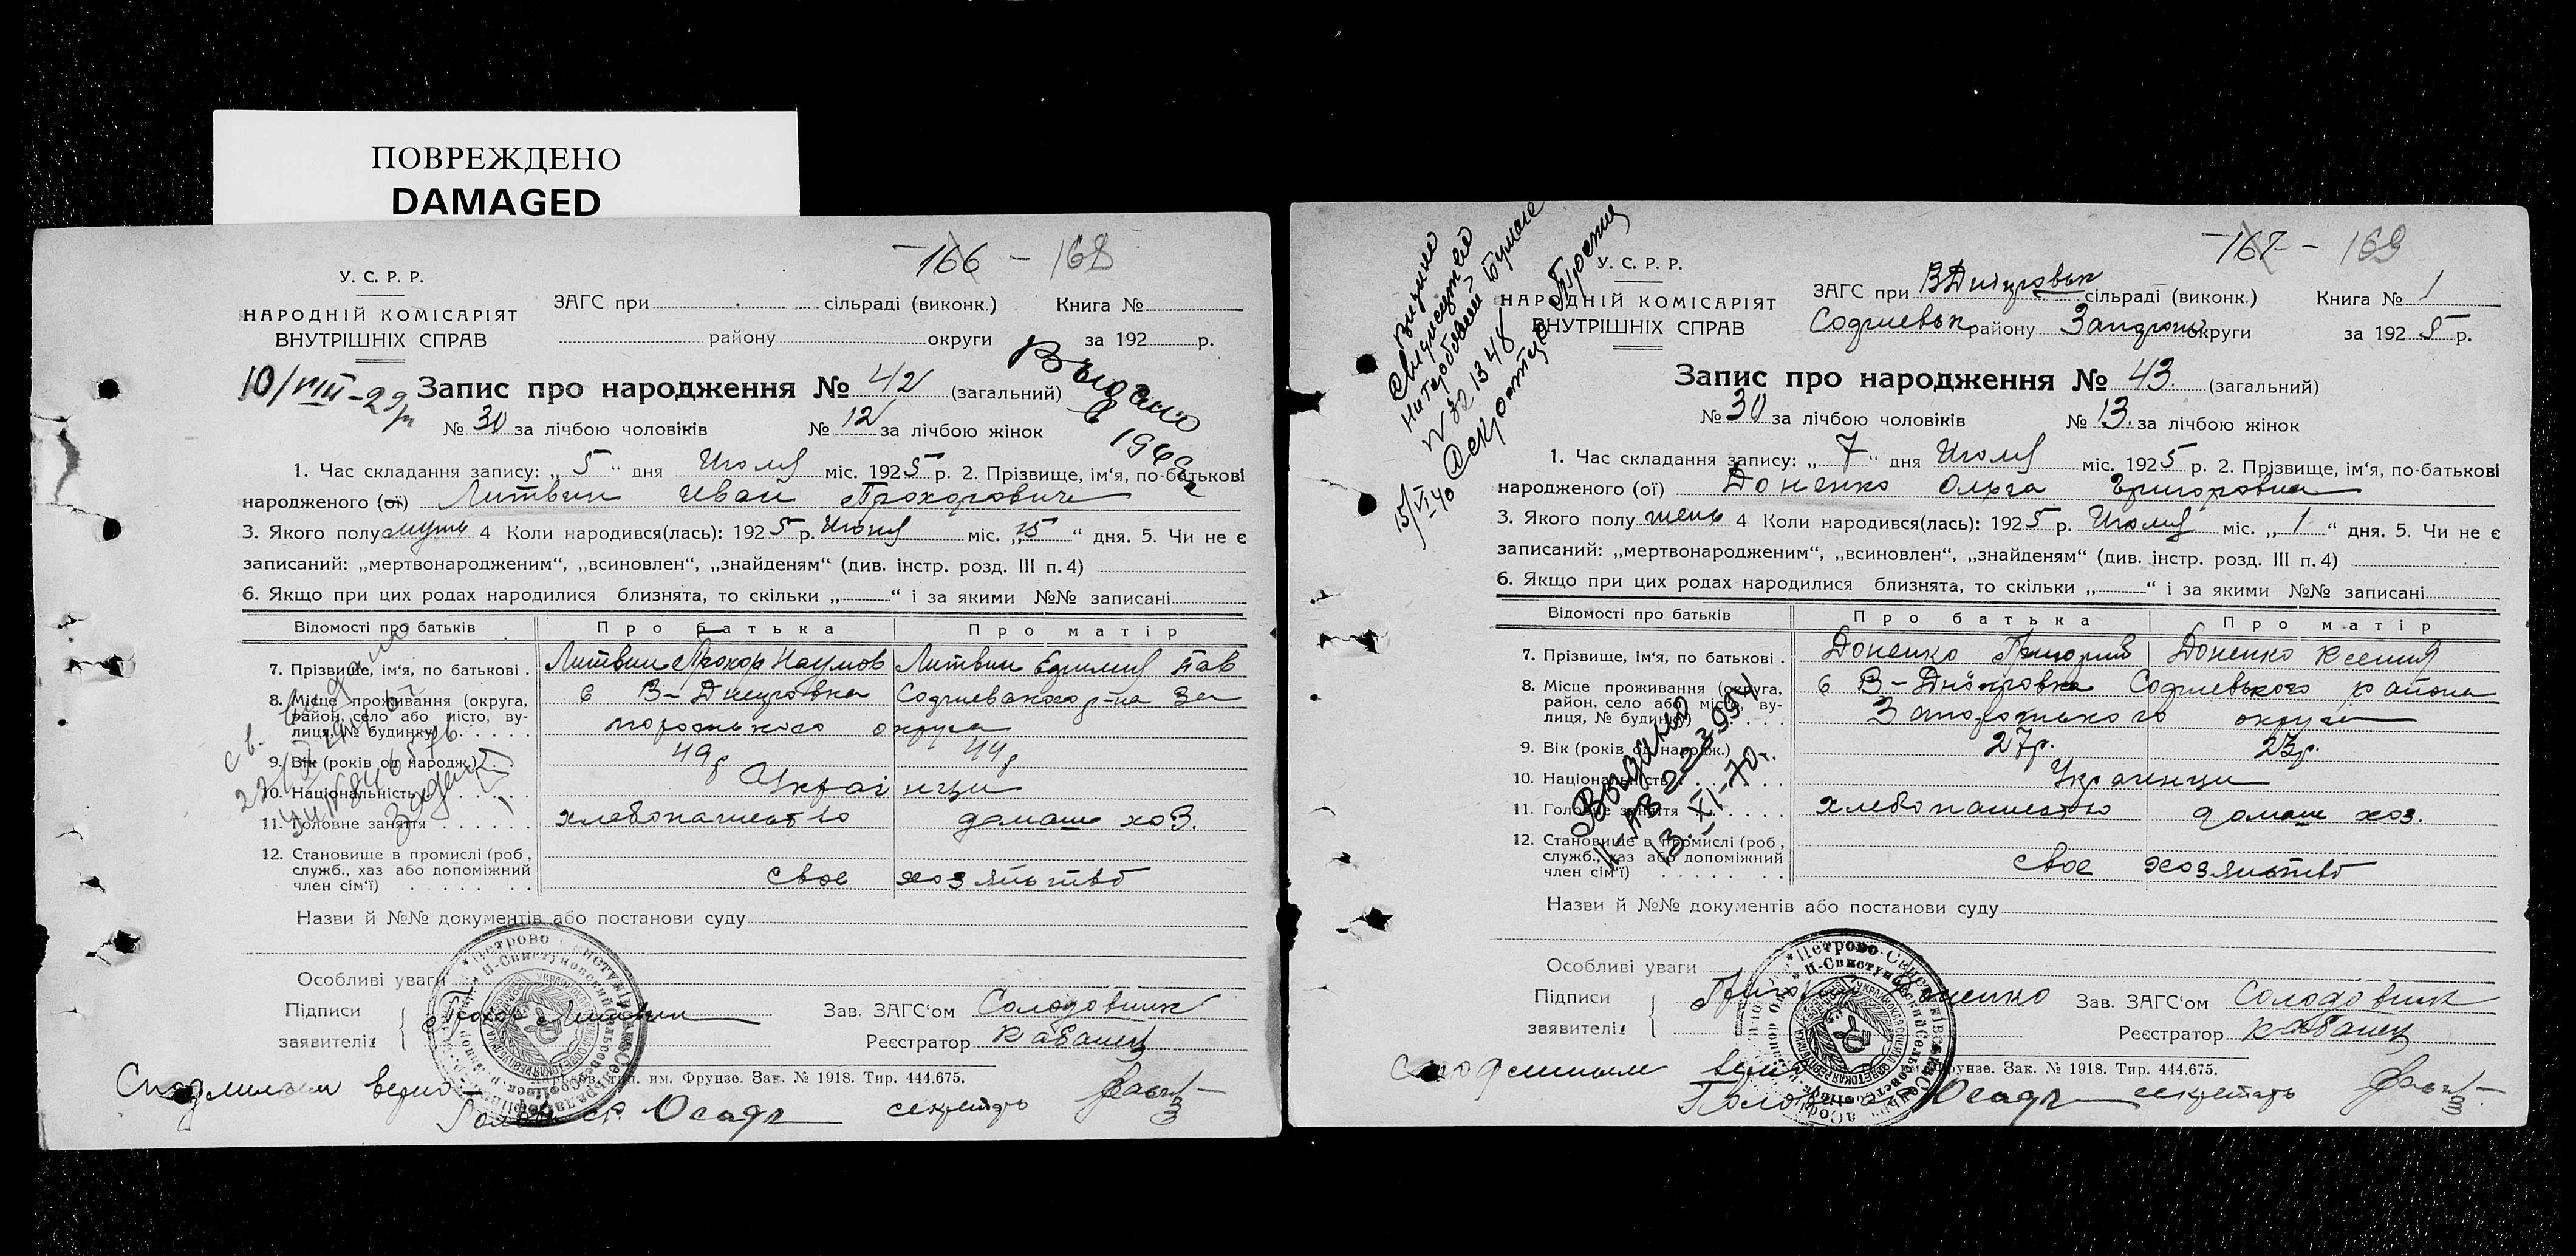 ПОВРЕЖДЕНО
DAMAGED
166 - 168
У. С. Р. Р.
НАРОДНІЙ КОМІСАРІЯТ
ВНУТРІШНІХ СПРАВ
ЗАГС при сільраді (виконк.) Книга №
району округи за 192 р.
Видано в 196
10/VIII-29р
Запис про народження № 42 (загальний)
№ 30 за лічбою чоловіків № 12 за лічбою жінок
1. Час складання запису: „ 5 “ дня Июля міс. 1925 р. 2. Прізвище, ім‘я, по-батькові
народженого (ої) Литвин Иван Прохорович
3. Якого полу муж 4 Коли народився(лась): 1925 р. Июня міс. „15 “ дня. 5. Чи не є
записаний: „мертвонародженим“, „всиновлен“, „знайденям“ (див. інстр. розд. III п. 4)
6. Якщо при цих родах народилися близнята, то скільки „ “ і за якими №№ записані
Відомості про батьків Про батька Про матір
7. Прізвище, ім‘я, по батькові . Литвин Прохор Наумов Литвин Ефимия Пав
8. Місце проживання (округа, район, село або місто, вулиця, № будинку) с В-Днепровка Софиевского р-на За
порожького округа
9. Вік (років од народж.) 49 44
10. Національність Украінци
11. Головне заняття хлебопашество домаш хоз.
12. Становище в промислі (роб, служб., хаз або допоміжний член сім‘ї) свое хозяйство
Назви й №№ документів або постанови суду
Особливі уваги
Підписи
заявителів
Прохор Литвин
Зав. ЗАГС‘ом Солодовник
Реєстратор Кабанец
им. Фрунзе. Зак. № 1918. Тир. 444.675.
верно
Голова с/с Осадч секретарь
167 - 169
У. С. Р. Р.
НАРОДНІЙ КОМІСАРІЯТ
ВНУТРІШНІХ СПРАВ
ЗАГС при ВДнипровськ сільраді (виконк.) Книга № 1
Софиевськ району Запорож округи за 1925 р.
15/VI-40
Запис про народження № 43. (загальний)
№ 30 за лічбою чоловіків № 13. за лічбою жінок
1. Час складання запису: „ 7 “ дня Июля міс. 1925 р. 2. Прізвище, ім‘я, по-батькові
народженого (ої) Доненко Ольга Григоровна
3. Якого полу жень 4 Коли народився(лась): 1925 р. Июля міс. „ 1 “ дня. 5. Чи не є
записаний: „мертвонародженим“, „всиновлен“, „знайденям“ (див. інстр. розд. III п. 4)
6. Якщо при цих родах народилися близнята, то скільки „ “ і за якими №№ записані
Відомості про батьків Про батька Про матір
7. Прізвище, ім‘я, по батькові . Доненко Григорий Доненко Ксения
8. Місце проживання (округа, район, село або місто, вулиця, № будинку) с В-Днипровка Софиевького района
Запорожького округа
9. Вік (років од народж.) 27р. 23р.
10. Національність Украенци
11. Головне заняття хлебопашество домаш хоз.
12. Становище в промислі (роб, служб., хаз або допоміжний член сім‘ї) свое хозяйство
Выдано
13.XI-70г.
Назви й №№ документів або постанови суду
Особливі уваги
Підписи
заявителів
Григор Доненко
Зав. ЗАГС‘ом Солодовник
Реєстратор Кабанец
Фрунзе. Зак. № 1918. Тир. 444.675.
Осадч секретарь